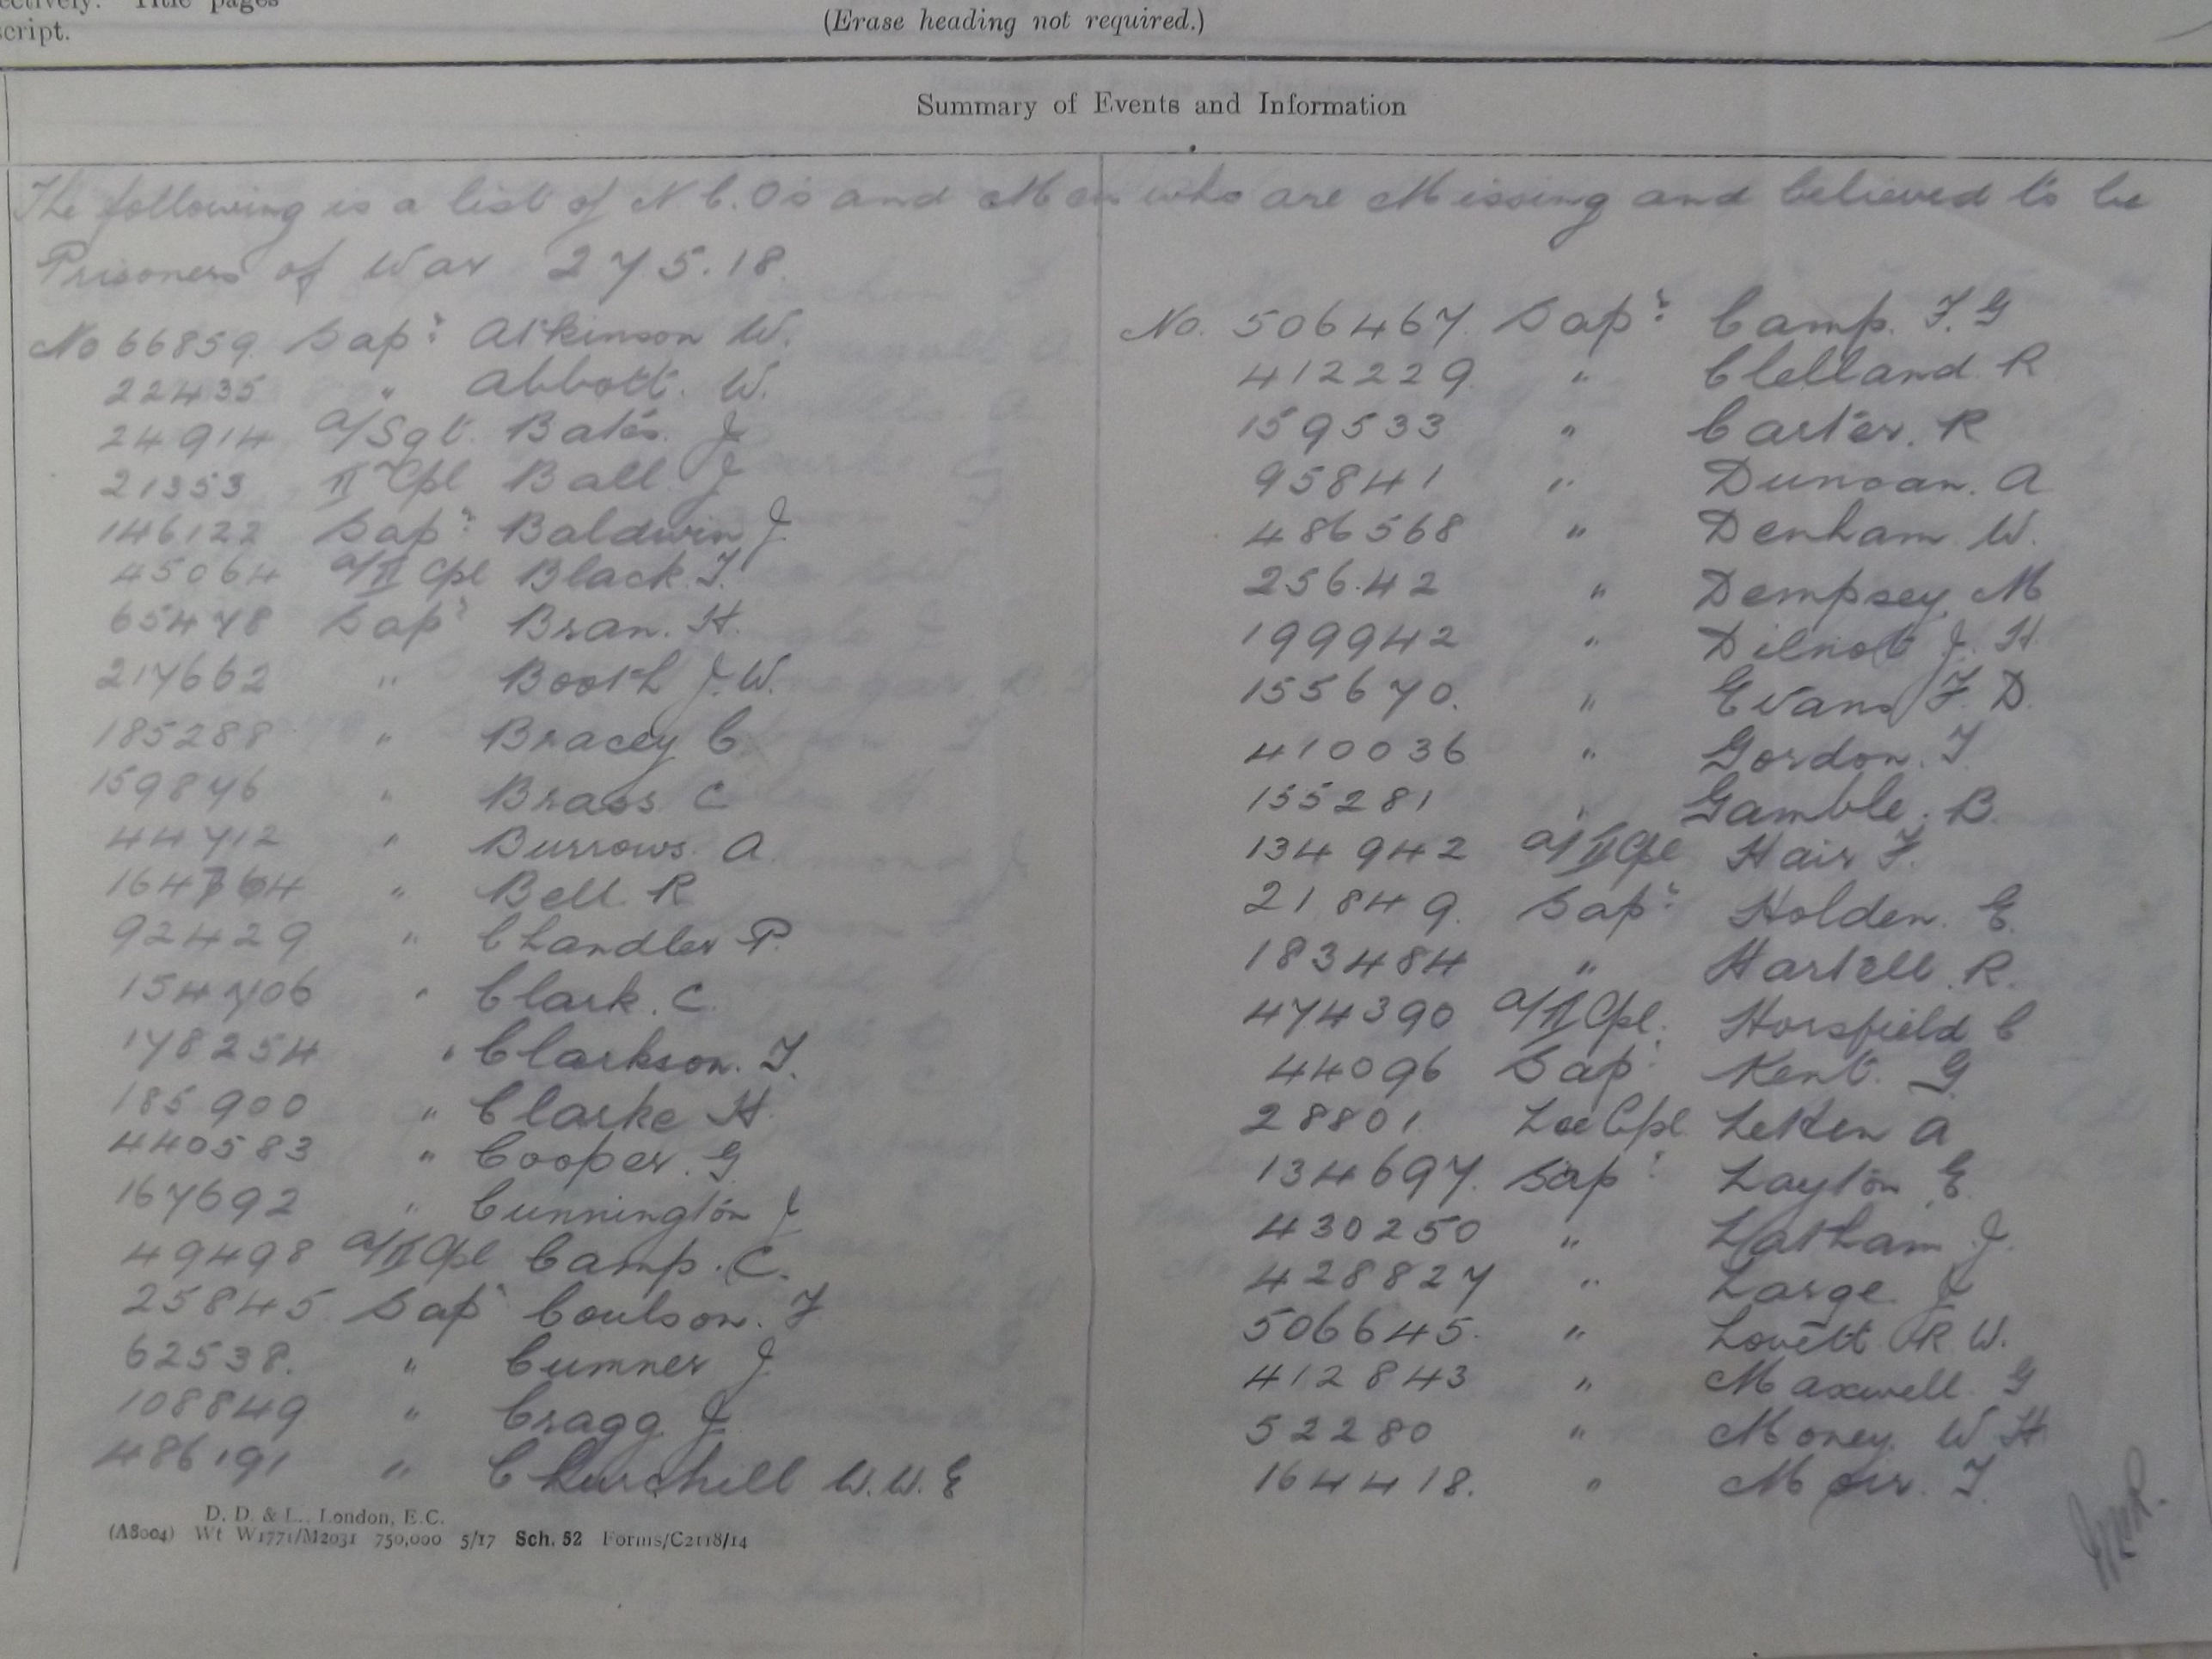 ectively. Title pages
script.
(Erase heading not required.)
Summary of Events and Information
The following is a list of N.C.Os and Men who are Missing and believed to be
Prisoners of War 27.5.18.
No 66859. Sapr Atkinson W.
22435 " Abbott. W.
24914 a/Sgt. Bates. J
21353 II Cpl Ball J
146122 Sapr Baldwin J
45064 a/II Cpl Black. T.
65478 Sapr Bran. H.
217662 " Booth J.W.
185288 " Bracey C.
159876 " Brass C
44712 " Burrows. A.
164764 " Bell. R
92429 " Chandler P.
154706 " Clark. C.
178254 " Clarkson. T.
185900 " Clarke H.
440583 " Cooper. G
167692 " Cunnington J
49498 a/II Cpl Camp. C.
25845 Sapr Coulson. F
62538. " Cumner J.
108849 " Cragg J
486191 " Churchill W.W.E
No. 506467. Sapr Camp. F.G
412229 " Clelland R
159533 " Carter. R
95841 " Duncan. A
486568 " Denham W.
25642 " Dempsey. M
199942 " Dilnot J. H.
155670. " Evans F. D.
410036 " Gordon. T.
155281 " Gamble. B.
134942 a/II Cpl Hair F.
21849. Sapr Holden. E.
183484 " Hartell. R.
474390 a/II Cpl. Horsfield C
44096 Sapr Kent. G
28801. Lce Cpl A
134697. Sapr Layton E.
430250 " Latham J.
428827 " Large J
506645. " Lovett R.W.
412843 " Maxwell G
52280 " Money. W H
164418. " Moir. T.
D. D. & L., London, E.C.
(A8004) Wt W1771/M2031 750,000 5/17 Sch. 52 Forms/C2118/14